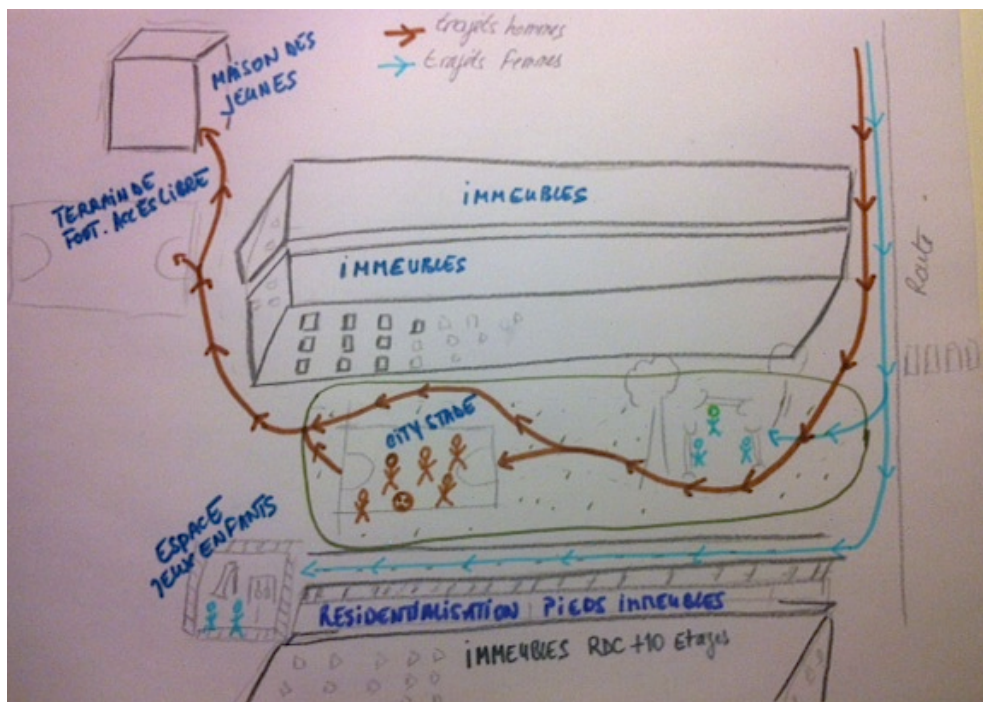 trajets hommes
trajets femmes
MAISON DES
JEUNES
TERRAIN DE
FOOT. ACCES LIBRE
iMMEUBLES
iMMEUBLES
Route
CITY STADE
ESPACE
JEUX ENFANTS
RESIDENTIALISATION PIEDS IMMEUBLES
iMMEUBLES RDC +10 Etages